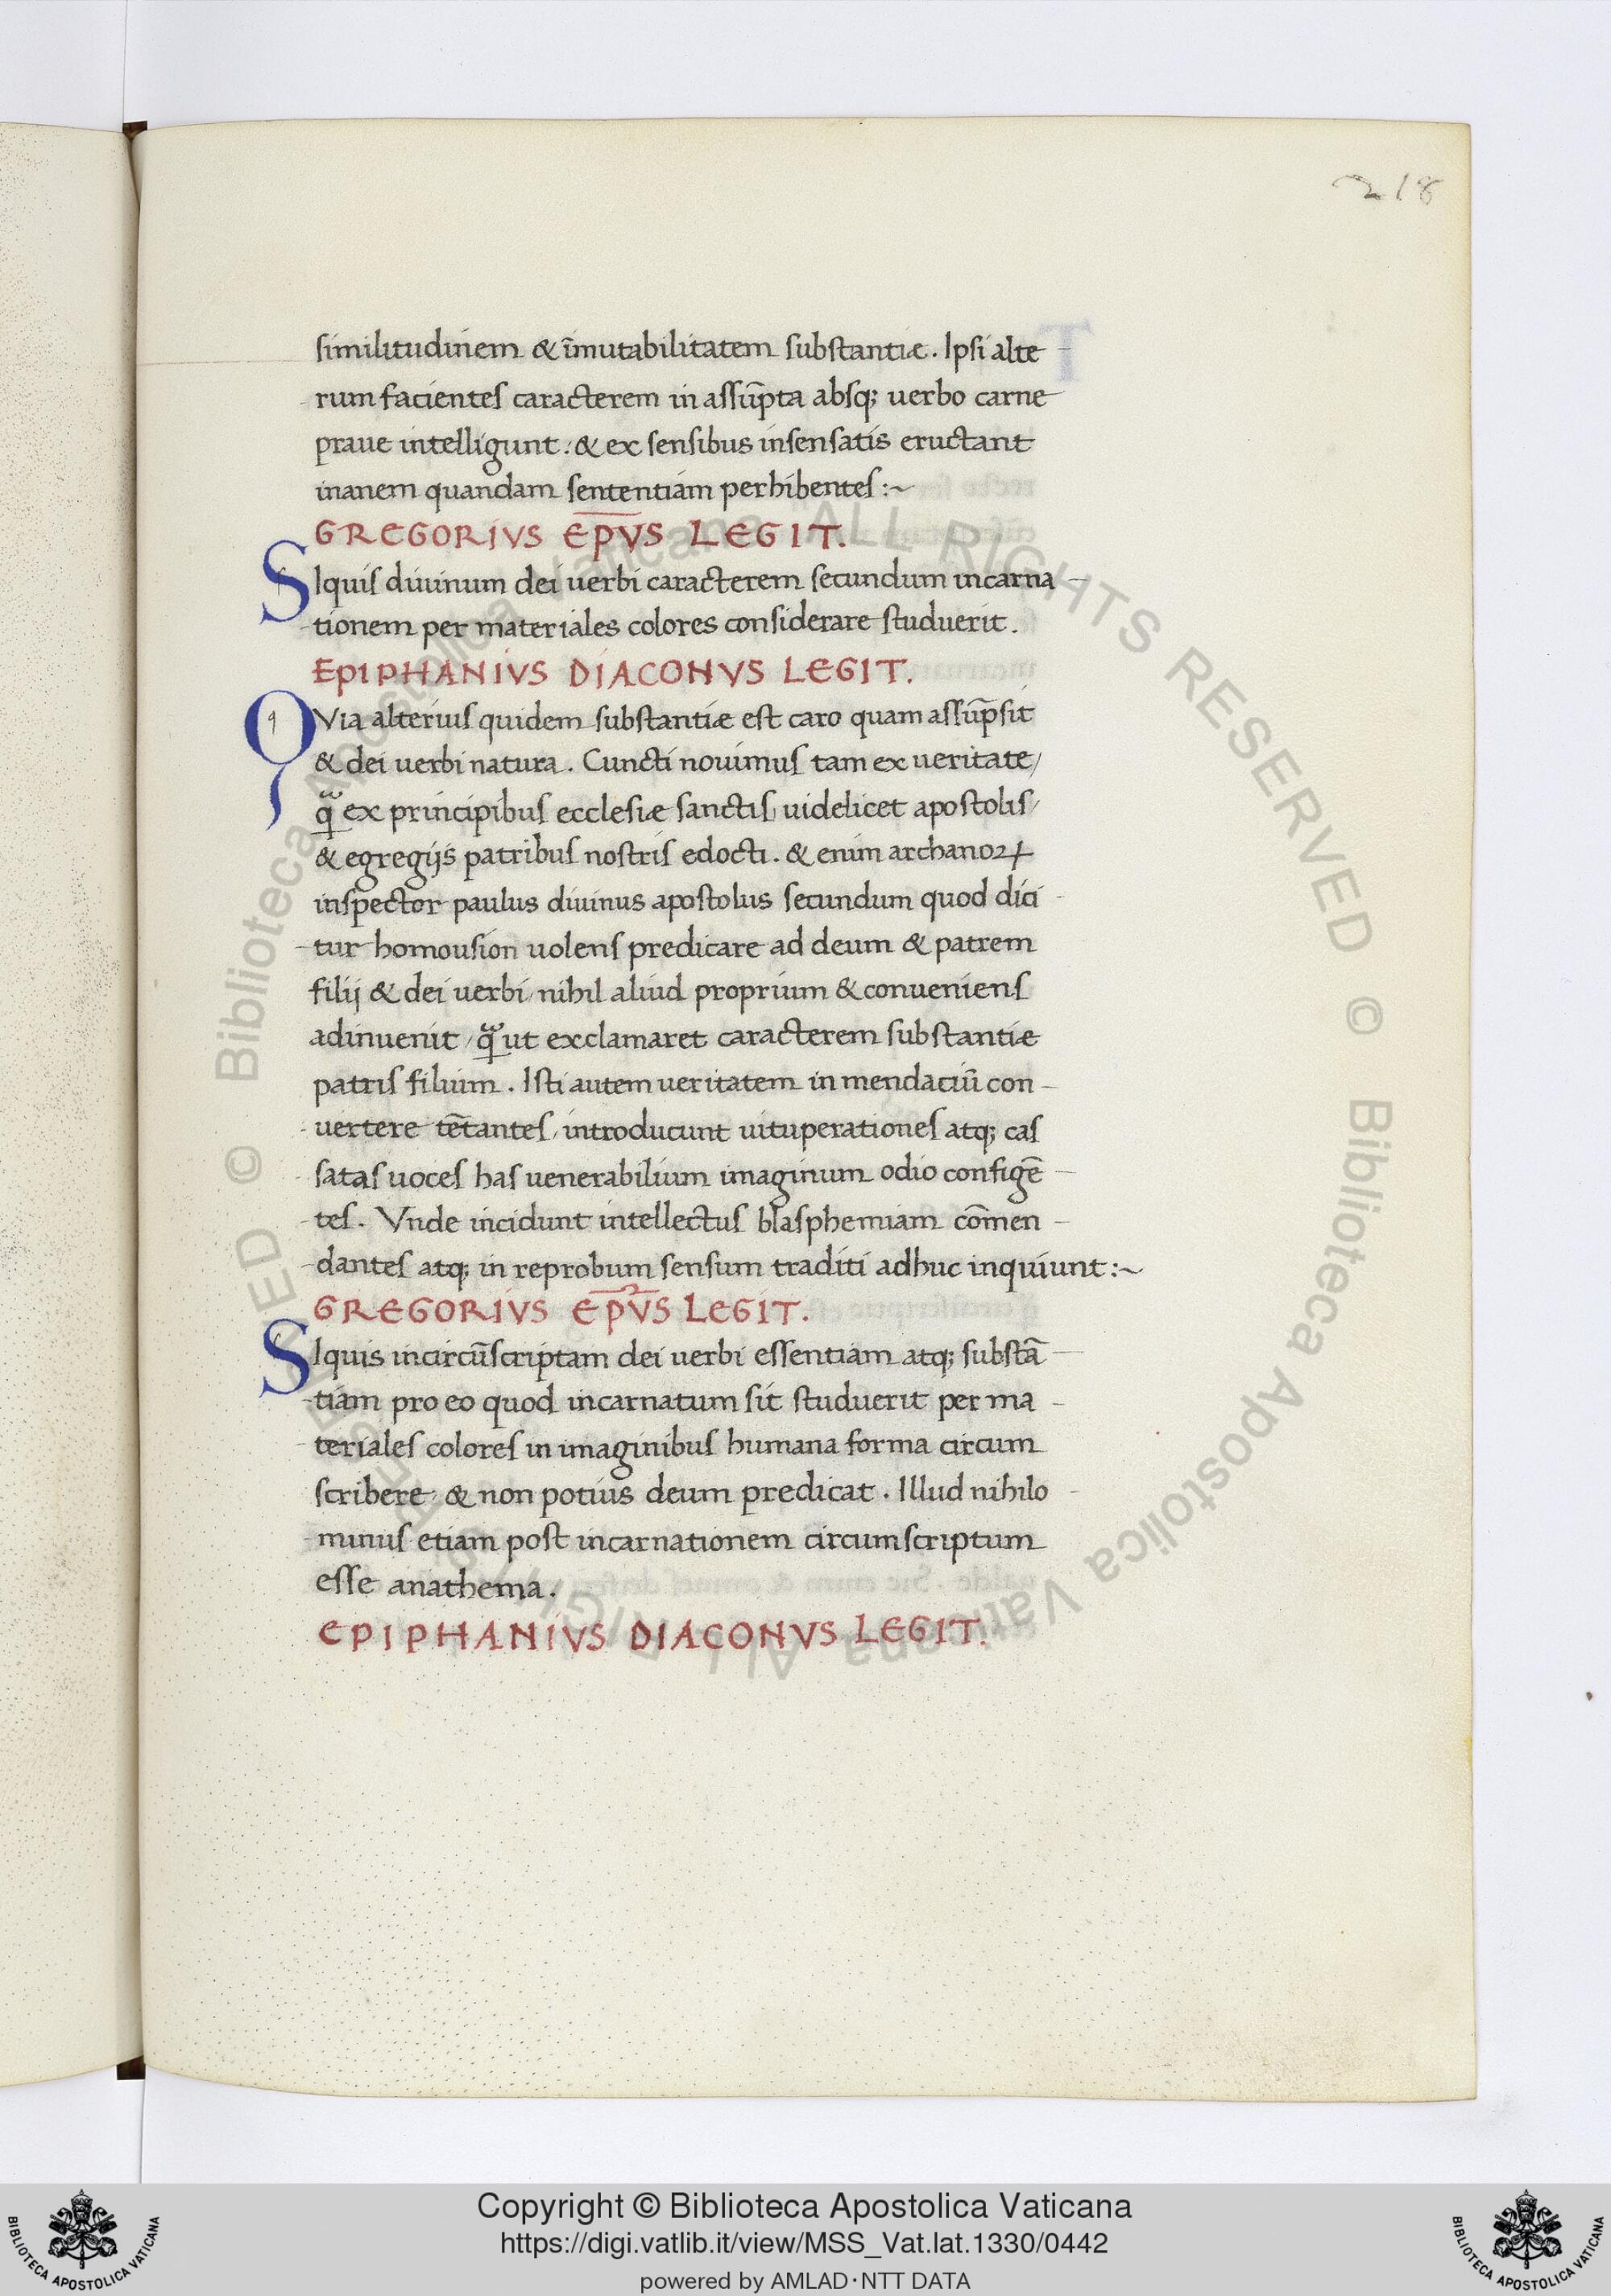 218
similitudinem & īmutabilitatem substantiæ. Ipsi alte
rum facientes caracterem in assūpta absq; uerbo carne
praue intelligunt: & ex sensibus insensatis eructant
inanem quandam sententiam perhibentes:~
GREGORIVS EPVS LEGIT.
SIquis diuinum dei uerbi caracterem secundum incarna-
tionem per materiales colores considerare studuerit.
EPIPHANIVS DIACONVS LEGIT.
QVia alterius quidem substantiæ est caro quam assūpsit
& dei uerbi natura. Cuncti nouimus tam ex ueritate/
qᷓ ex principibus ecclesiæ sanctis, uidelicet apostolis/
& egregijs patribus nostris edocti. & enim archanoꝝ
inspector paulus diuinus apostolus secundum quod dici-
tur homousion uolens predicare ad deum & patrem
filij & dei uerbi/nihil aliud proprium & conueniens
adinuenit/qᷓ ut exclamaret caracterem substantiæ
patris filium. Isti autem ueritatem in mendaciū con-
uertere tētantes/introducunt uituperationes atq; cas
satas uoces has uenerabilium imaginum odio configē-
tes. Vnde incidunt intellectus blasphemiam cōmen-
dantes atq; in reprobum sensum traditi adhuc inquiunt:~
GREGORIVS EPVS LEGIT.
SIquis incircūscriptam dei uerbi essentiam atq; substā-
tiam pro eo quod incarnatum sit studuerit per ma-
teriales colores in imaginibus humana forma circum
scribere/ & non potius deum predicat. Illud nihilo-
minus etiam post incarnationem circumscriptum
esse anathema.
EPIPHANIVS DIACONVS LEGIT.
© Biblioteca Apostolica Vaticana ALL RIGHTS RESERVED © Biblioteca Apostolica Vaticana ALL RIGHTS RESERVED
Copyright © Biblioteca Apostolica Vaticana
https://digi.vatlib.it/view/MSS_Vat.lat.1330/0442
powered by AMLAD·NTT DATA
BIBLIOTECA APOSTOLICA VATICANA
BIBLIOTECA APOSTOLICA VATICANA